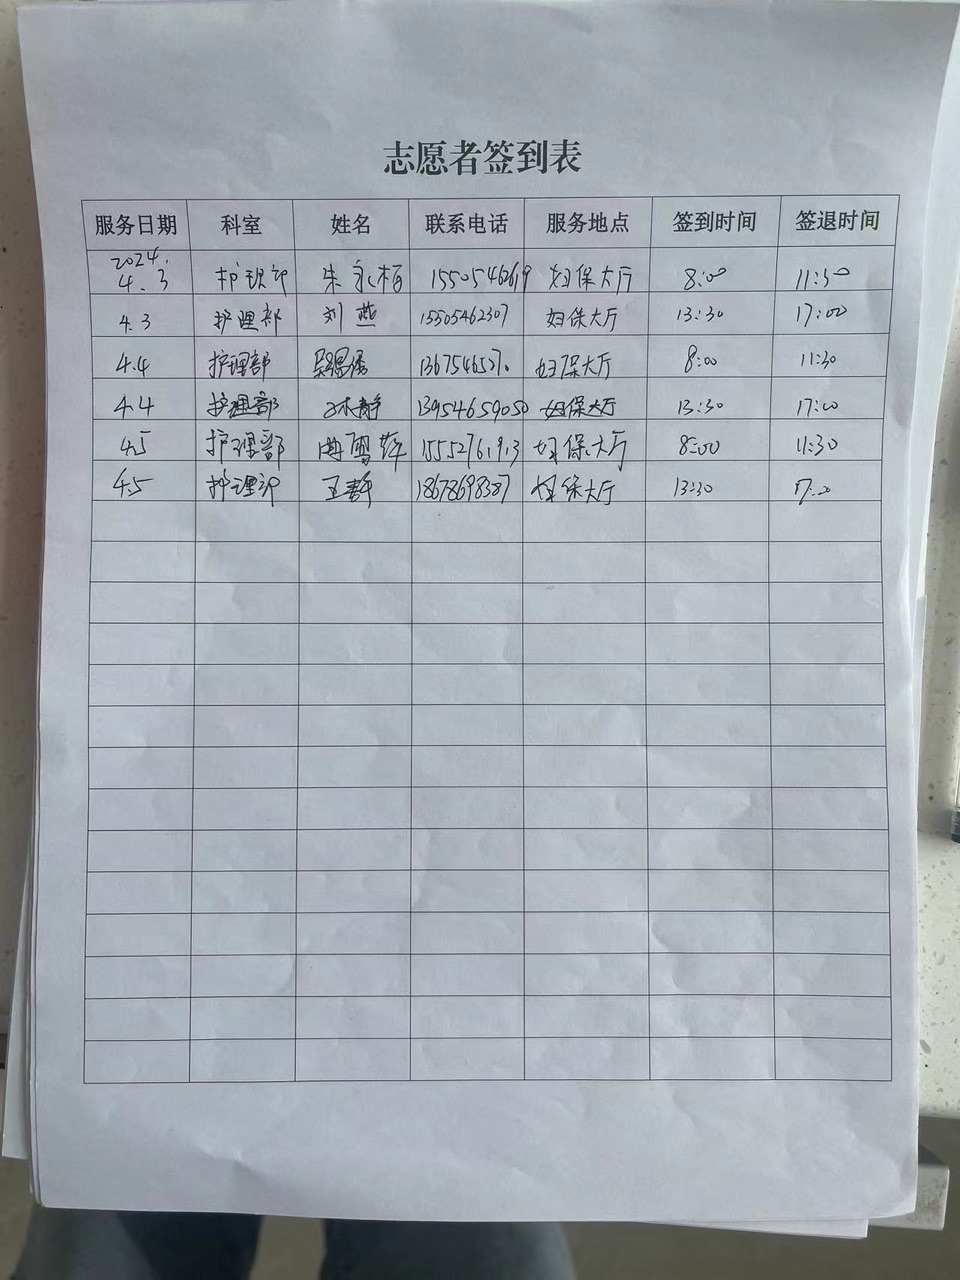 志愿者签到表
服务日期 科室 姓名 联系电话 服务地点 签到时间 签退时间
2024.
4.3 护理部 朱永梅 15505462619 妇保大厅 8:00 11:30
4.3 护理部 刘燕 15505462307 妇保大厅 13:30 17:00
4.4 护理部 妇保大厅 8:00 11:30
4.4 护理部 13954659050 妇保大厅 13:30 17:00
4.5 护理部 1552761913 妇保大厅 8:00 11:30
4.5 护理部 王静 18678698387 妇保大厅 13:30 17:00